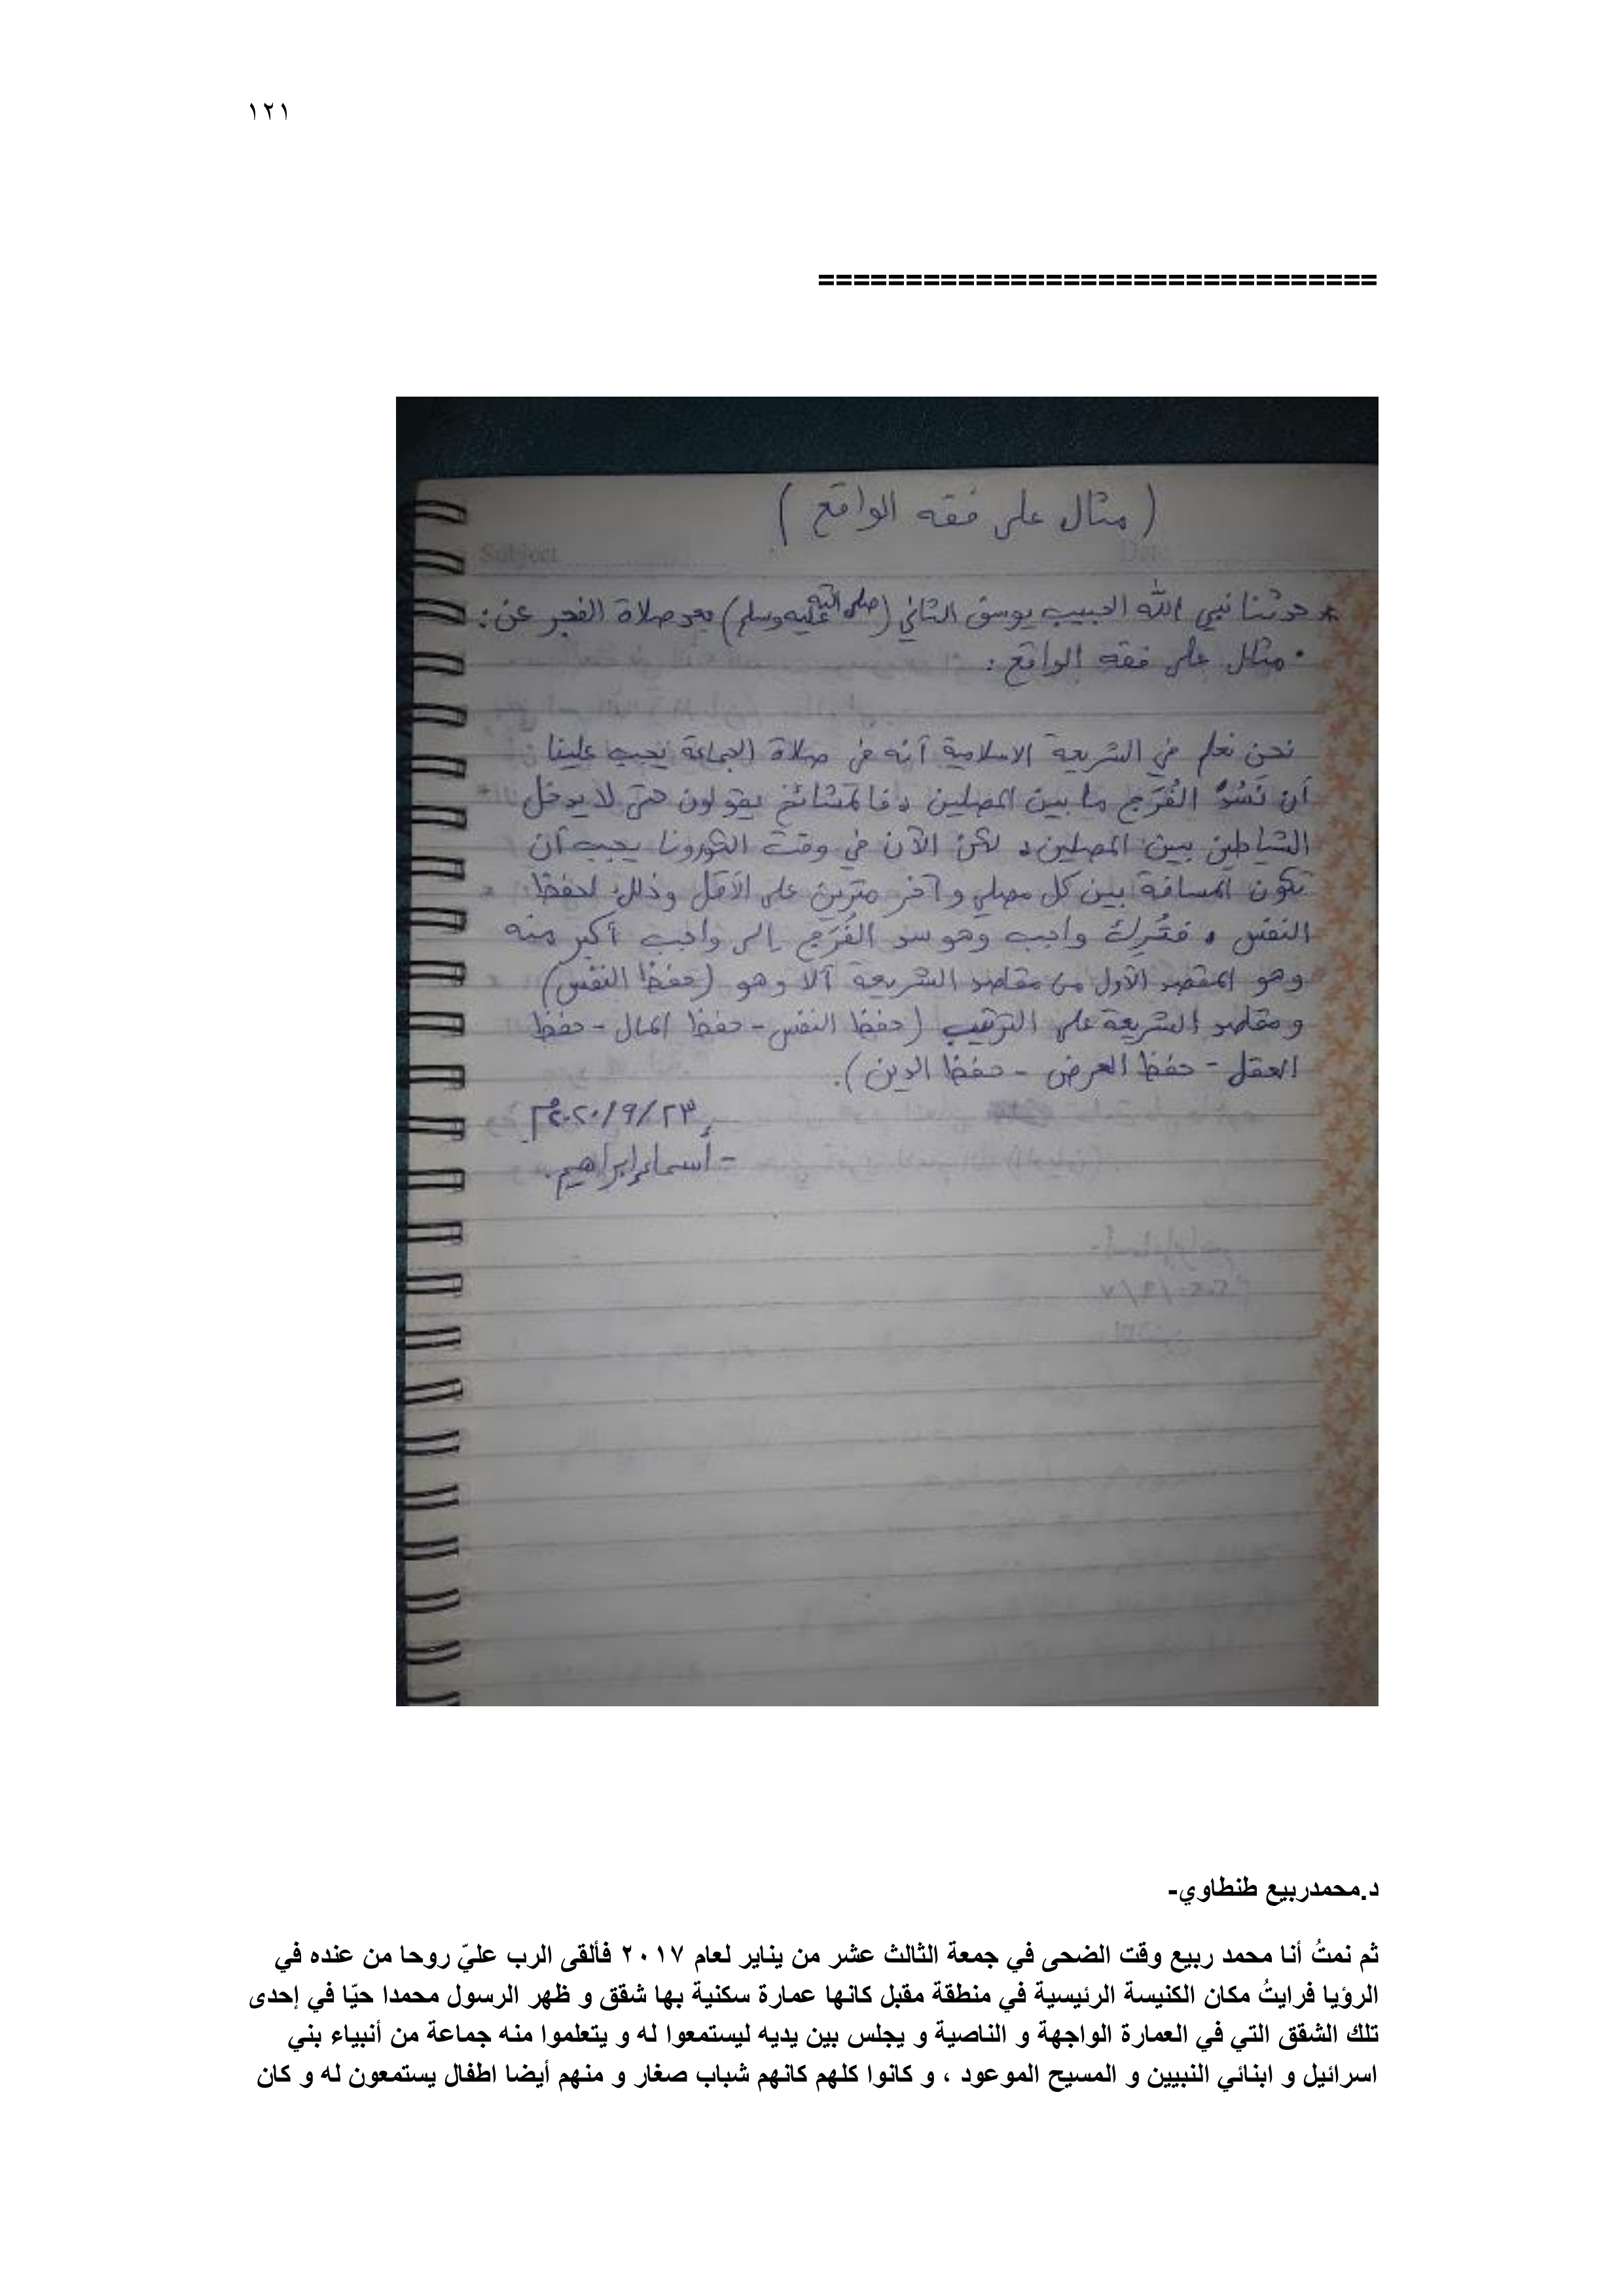 ١٢١
================================
( مثال على فقه الواقع )
Subject
Date
* حدثنا نبي الله الحبيب يوسف الثاني (صلى الله عليه وسلم) بعد صلاة الفجر عن :
• مثال على فقه الواقع :
نحن نعلم في الشريعة الاسلامية أنه في صلاة الجماعة يجب علينا
أن نَسُدَّ الفُرَج ما بين المصلين ، فالمشائخ يقولون حتى لا يدخل
الشياطين بين المصلين ، لكن الآن في وقت الكورونا يجب أن
تكون المسافة بين كل مصلي وآخر مترين على الأقل وذلك لحفظ
النفس ، فتُرِك واجب وهو سد الفُرَج إلى واجب أكبر منه
وهو المقصد الأول من مقاصد الشريعة ألا وهو (حفظ النفس)
ومقاصد الشريعة على الترتيب (حفظ النفس - حفظ المال - حفظ
العقل - حفظ العرض - حفظ الدين ).
٢٣/٩/٢٠٢٠م
- أسماء إبراهيم.
د.محمدربيع طنطاوي-
ثم نمتُ أنا محمد ربيع وقت الضحى في جمعة الثالث عشر من يناير لعام ٢٠١٧ فألقى الرب عليّ روحا من عنده في
الرؤيا فرايتُ مكان الكنيسة الرئيسية في منطقة مقبل كانها عمارة سكنية بها شقق و ظهر الرسول محمدا حيّا في إحدى
تلك الشقق التي في العمارة الواجهة و الناصية و يجلس بين يديه ليستمعوا له و يتعلموا منه جماعة من أنبياء بني
اسرائيل و ابنائي النبيين و المسيح الموعود ، و كانوا كلهم كانهم شباب صغار و منهم أيضا اطفال يستمعون له و كان